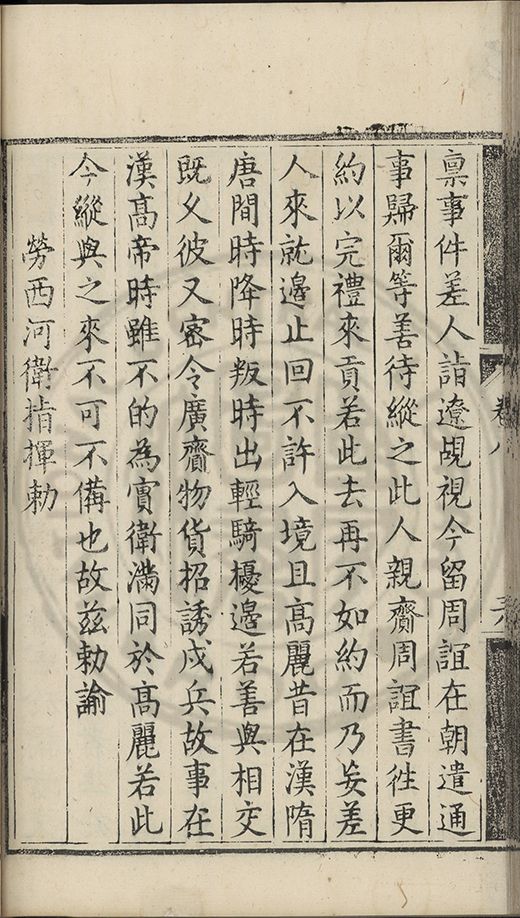 稟事件差人詣遼覘視今留周誼在朝遣通
事歸爾等善待縱之此人親齎周誼書徃更
約以完禮來貢若此去再不如約而乃妄差
人來就邊止回不許入境且高麗昔在漢隋
唐間時降時叛時出輕騎擾邊若善與相交
既乆彼又密令廣齎物貨招誘戍兵故事在
漢高帝時雖不的為實衛滿同於高麗若此
今縱與之來不可不備也故兹勅諭
勞西河衛指揮勅
卷八